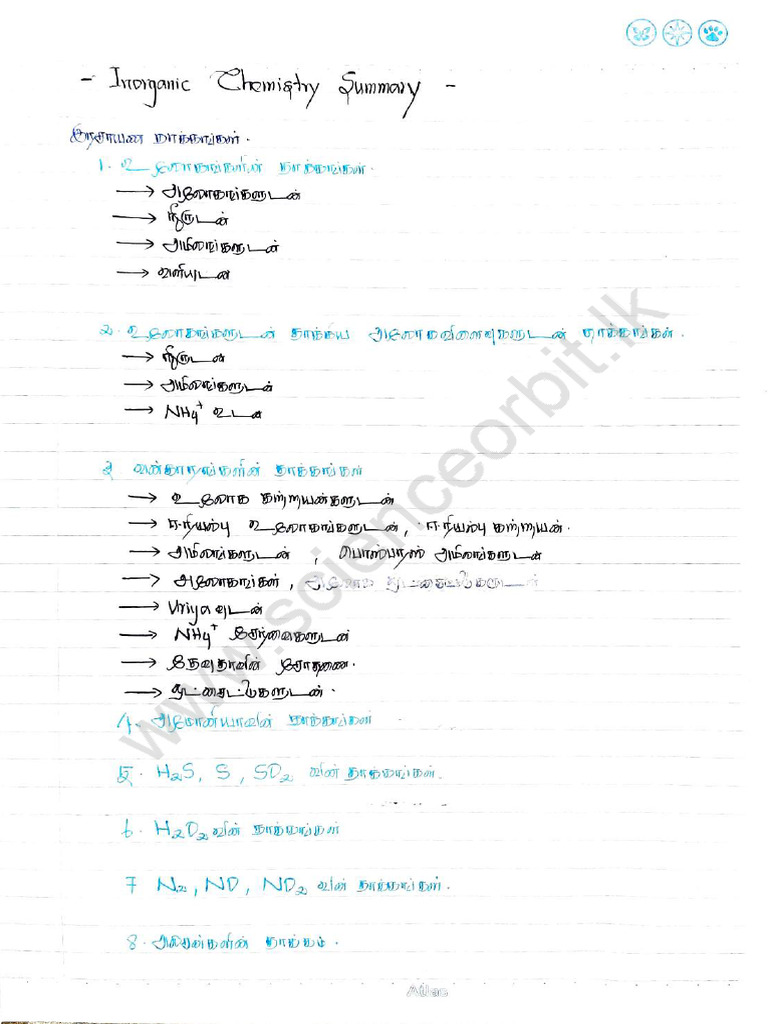 - Inorganic Chemistry Summary -
இரசாயன தாக்கங்கள்.
1. உலோகங்களின் தாக்கங்கள்.
→ அலோகங்களுடன்
→ நீருடன்
→ அமிலங்களுடன்
→ வளியுடன்
2. உலோகங்களுடன் தாக்கிய அலோகவிளைவுகளுடன் தாக்கங்கள்.
→ நீருடன்
→ அமிலங்களுடன்
→ NH4+ உடன்
3 வன்காரங்களின் தாக்கங்கள்
→ உலோக கற்றயன்களுடன்
→ ஈரியல்பு உலோகங்களுடன், ஈரியல்பு கற்றயன்.
→ அமிலங்களுடன், பொஸ்பரஸ் அமிலங்களுடன்
→ அலோகங்கள், அலோக ஒட்சைட்டுகளுடன்
→ Uriya வுடன்
→ NH4+ சேர்வைகளுடன்
→ தேவதாவின் சோதனை.
→ ஒட்சைட்டுகளுடன்.
4. அமோனியாவின் தாக்கங்கள்
5. H2S, S, SO2 வின் தாக்கங்கள்.
6. H2O2 வின் தாக்கங்கள்
7 N2, NO, NO2 வின் தாக்கங்கள்.
8. அலசன்களின் தாக்கம்.
www.scienceorbit.lk
Atlas